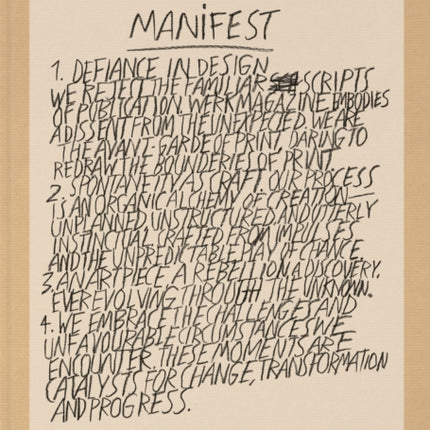 MANiFEST
1. DEFIANCE IN DESIGN
WE REJECT THE FAMILIAR SCRIPTS
OF PUBLICATION. WERK MAGAZINE EMBODIES
A DISSENT FROM THE UNEXPECTED. WE ARE
THE AVANT GARDE OF PRINT, DARING TO
REDRAW THE BOUNDERIES OF PRINT
2. SPONTANEITY AS CRAFT. OUR PROCESS
IS AN ORGANIC ALCHEMY OF CREATION—
UNPLANNED, UNSTRUCTURED AND UTTERLY
INSTINCTUAL, CRAFTED FROM IMPULSES
AND THE UNPREDICTABLE PLAY OF CHANCE.
3. AN ART PIECE, A REBELLION, A DISCOVERY,
EVER EVOLVING THROUGH THE UNKNOWN.
4. WE EMBRACE THE CHALLENGES AND
UNFAVOURABLE CIRCUMSTANCES WE
ENCOUNTER. THESE MOMENTS ARE
CATALYSTS FOR CHANGE, TRANSFORMATION
AND PROGRESS.